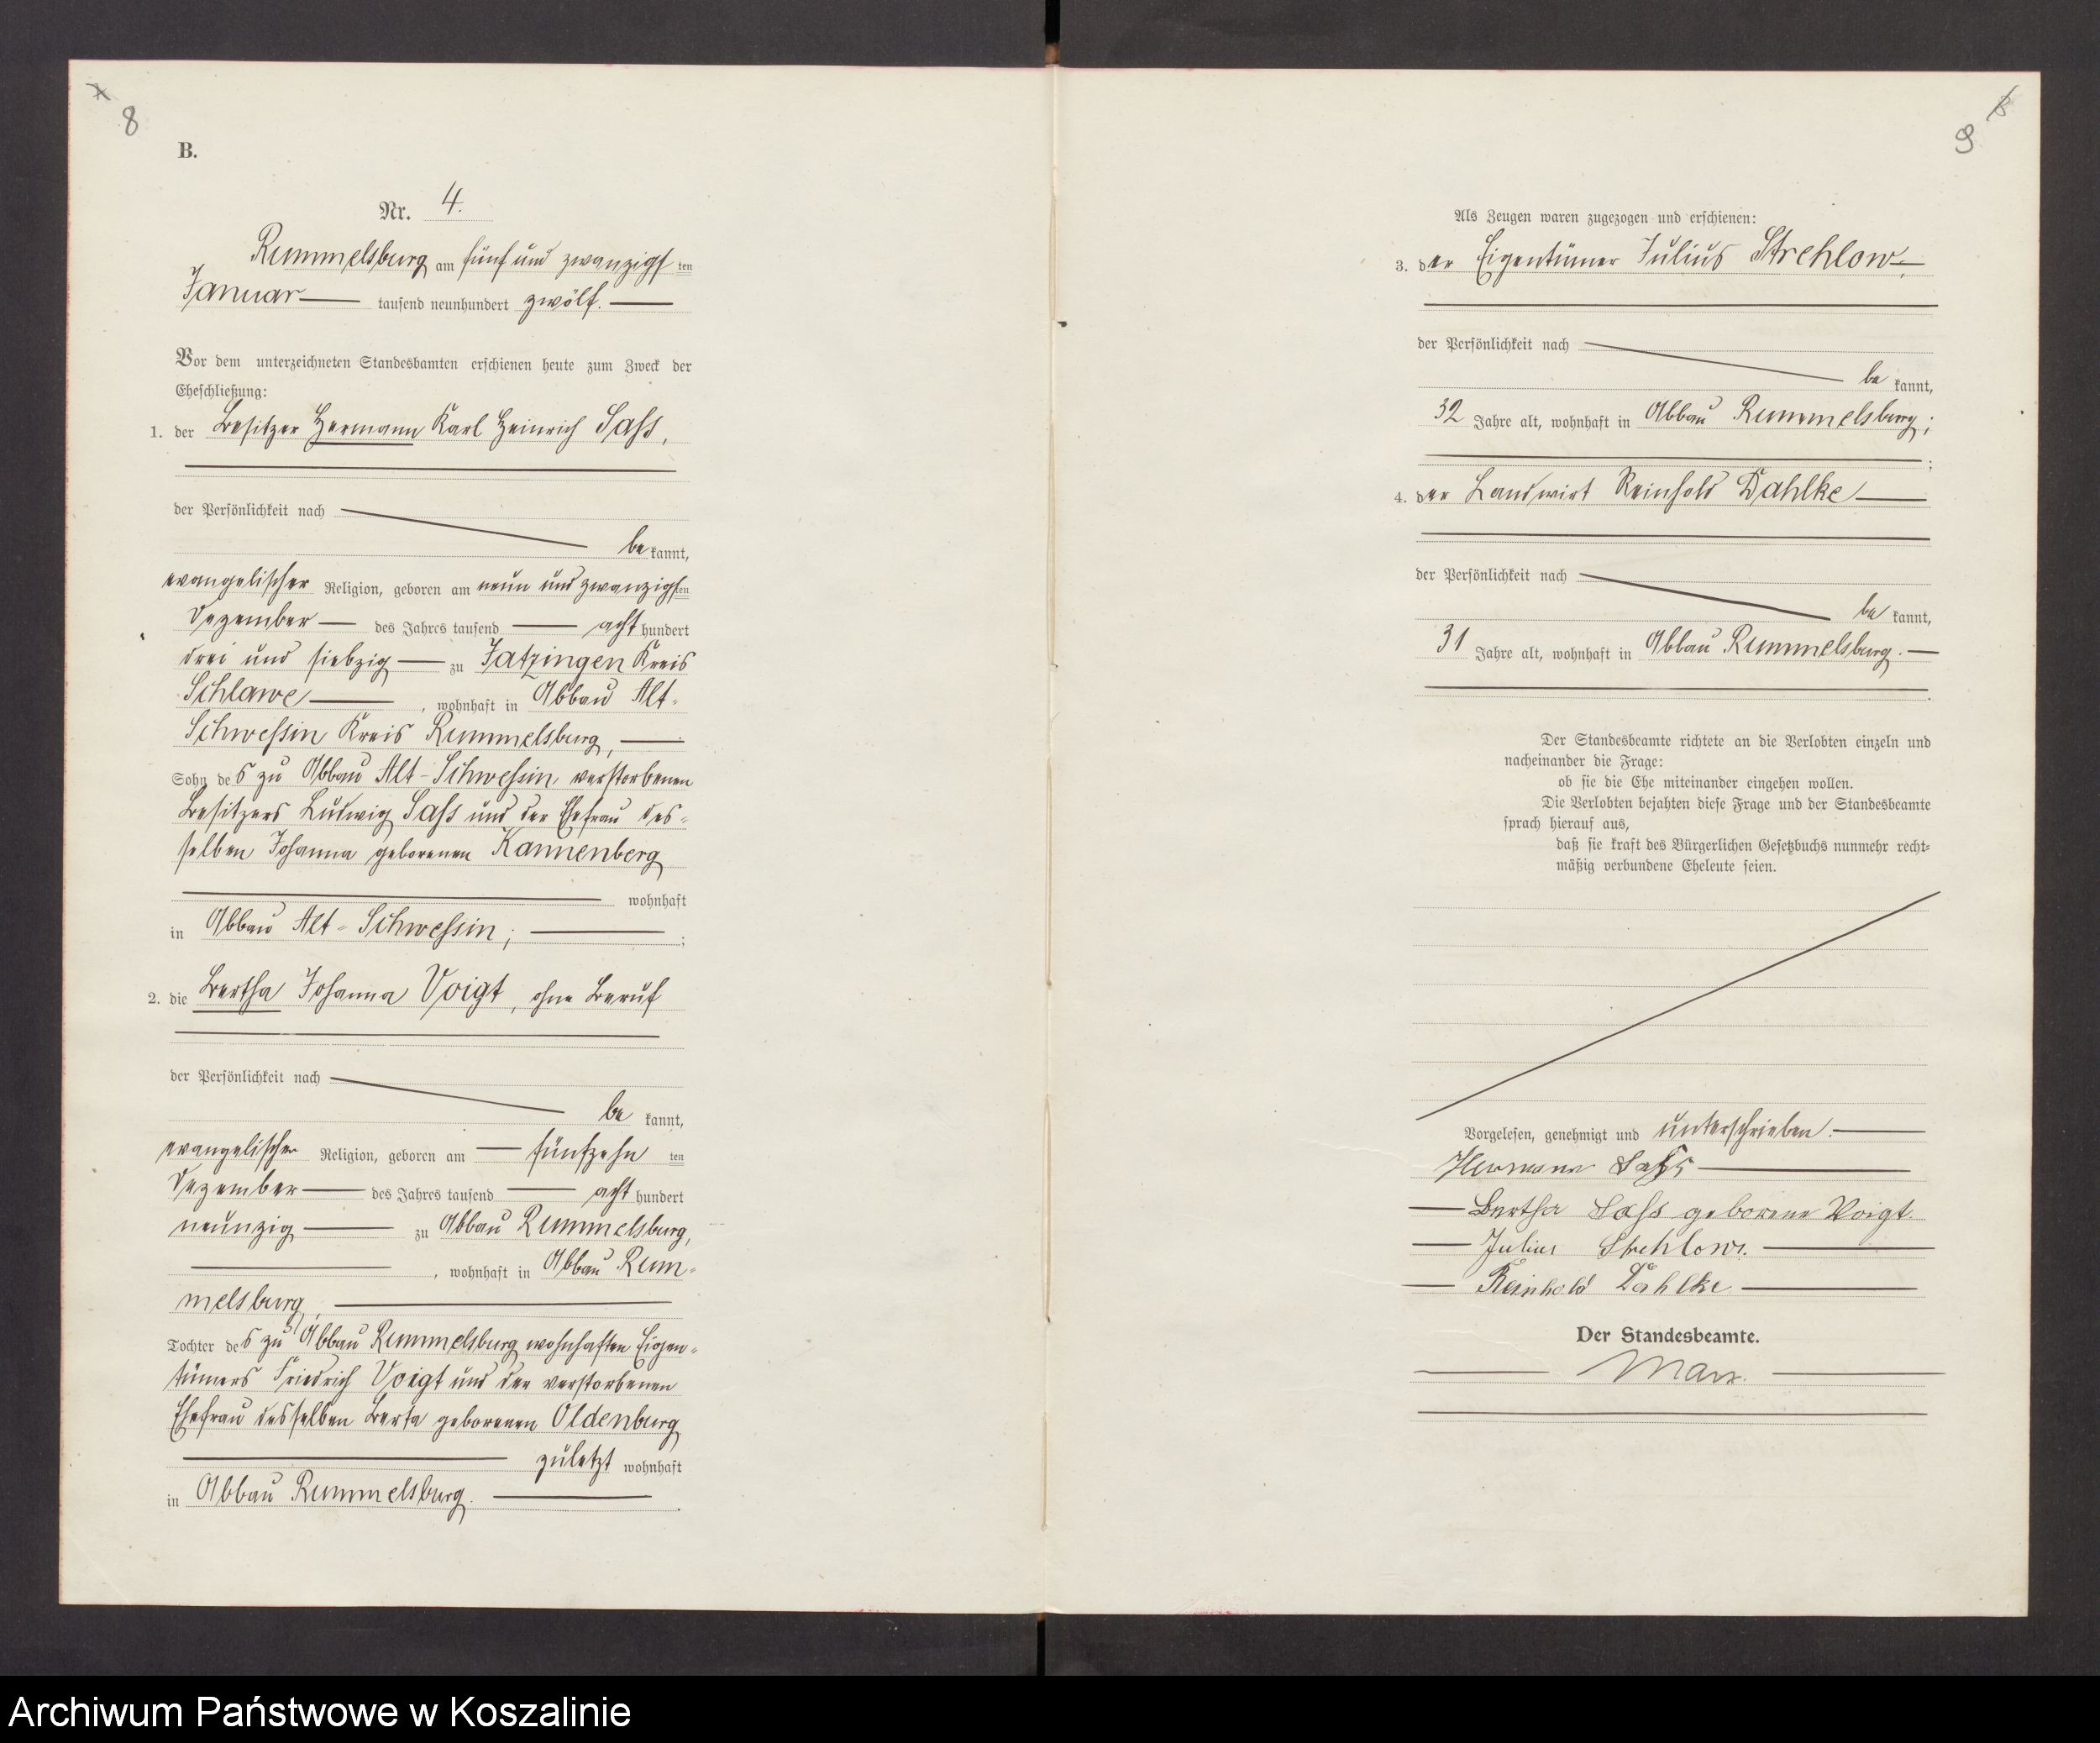 8
B.
Nr. 4.
Rummelsburg am fünf und zwanzigsten
Januar tausend neunhundert zwölf.
Vor dem unterzeichneten Standesbamten erschienen heute zum Zweck der
Eheschließung:
1. der Besitzer Hermann Karl Heinrich Sass,
der Persönlichkeit nach
bekannt,
evangelischer Religion, geboren am neun und zwanzigsten
Dezember des Jahres tausend acht hundert
drei und siebzig zu Jatzingen Kreis
Schlawe, wohnhaft in Abbau Alt-
Schwessin Kreis Rummelsburg,
Sohn des zu Abbau Alt-Schwessin verstorbenen
Besitzers Ludwig Sass und der Ehefrau des-
selben Johanna geborenen Kannenberg
wohnhaft
in Abbau Alt-Schwessin;
2. die Bertha Johanna Voigt, ohne Beruf
der Persönlichkeit nach
bekannt,
evangelischer Religion, geboren am fünfzehnten
Dezember des Jahres tausend acht hundert
neunzig zu Abbau Rummelsburg,
, wohnhaft in Abbau Rum-
melsburg,
Tochter des zu Abbau Rummelsburg wohnhaften Eigen-
tümers Friedrich Voigt und der verstorbenen
Ehefrau desselben Berta geborenen Oldenburg
zuletzt wohnhaft
in Abbau Rummelsburg.
9
Als Zeugen waren zugezogen und erschienen:
3. der Eigentümer Julius Strehlow,
der Persönlichkeit nach
bekannt,
32 Jahre alt, wohnhaft in Abbau Rummelsburg;
4. der Landwirt Reinhold Dahlke
der Persönlichkeit nach
bekannt,
31 Jahre alt, wohnhaft in Abbau Rummelsburg.
Der Standesbeamte richtete an die Verlobten einzeln und
nacheinander die Frage:
ob sie die Ehe miteinander eingehen wollen.
Die Verlobten bejahten diese Frage und der Standesbeamte
sprach hierauf aus,
daß sie kraft des Bürgerlichen Gesetzbuchs nunmehr recht-
mäßig verbundene Eheleute seien.
Vorgelesen, genehmigt und unterschrieben.
Hermann Sass
Bertha Sass geborene Voigt.
Julius Strehlow.
Reinhold Dahlke
Der Standesbeamte.
Archiwum Państwowe w Koszalinie